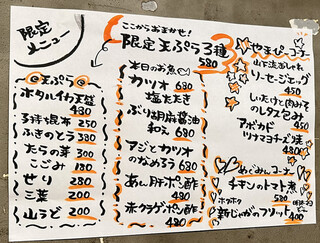 限定
メニュー
ここからおまかせ!
限定天ぷら3種
580
天ぷら
ホタルイカ天盛
480
子持ち昆布 250
ふきのとう 380
たらの芽 300
こごみ 180
せり 280
三葉 200
山うど 200
本日のお魚
カツオ 680
塩たたき
ぶり胡麻醤油
和え 680
アジとカツオ
のなめろう 680
あん肝ポン酢
480
赤クラゲポン酢
480
やまぴーコーナー
山下流おしゃれ
ソーセージエッグ
450
しいたけと肉みそ
のレタス包み
450
アボカド
ツナマヨチーズ味
480
めぐみんコーナー
チキンのトマト煮
580
ホクホク
新じゃがフリット
400